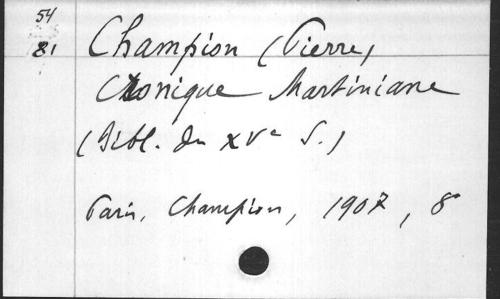 54
81
Champion (Pierre)
Cronique Martiniane
(Bibl. du XVe S.)
Paris, Champion, 1907, 8°